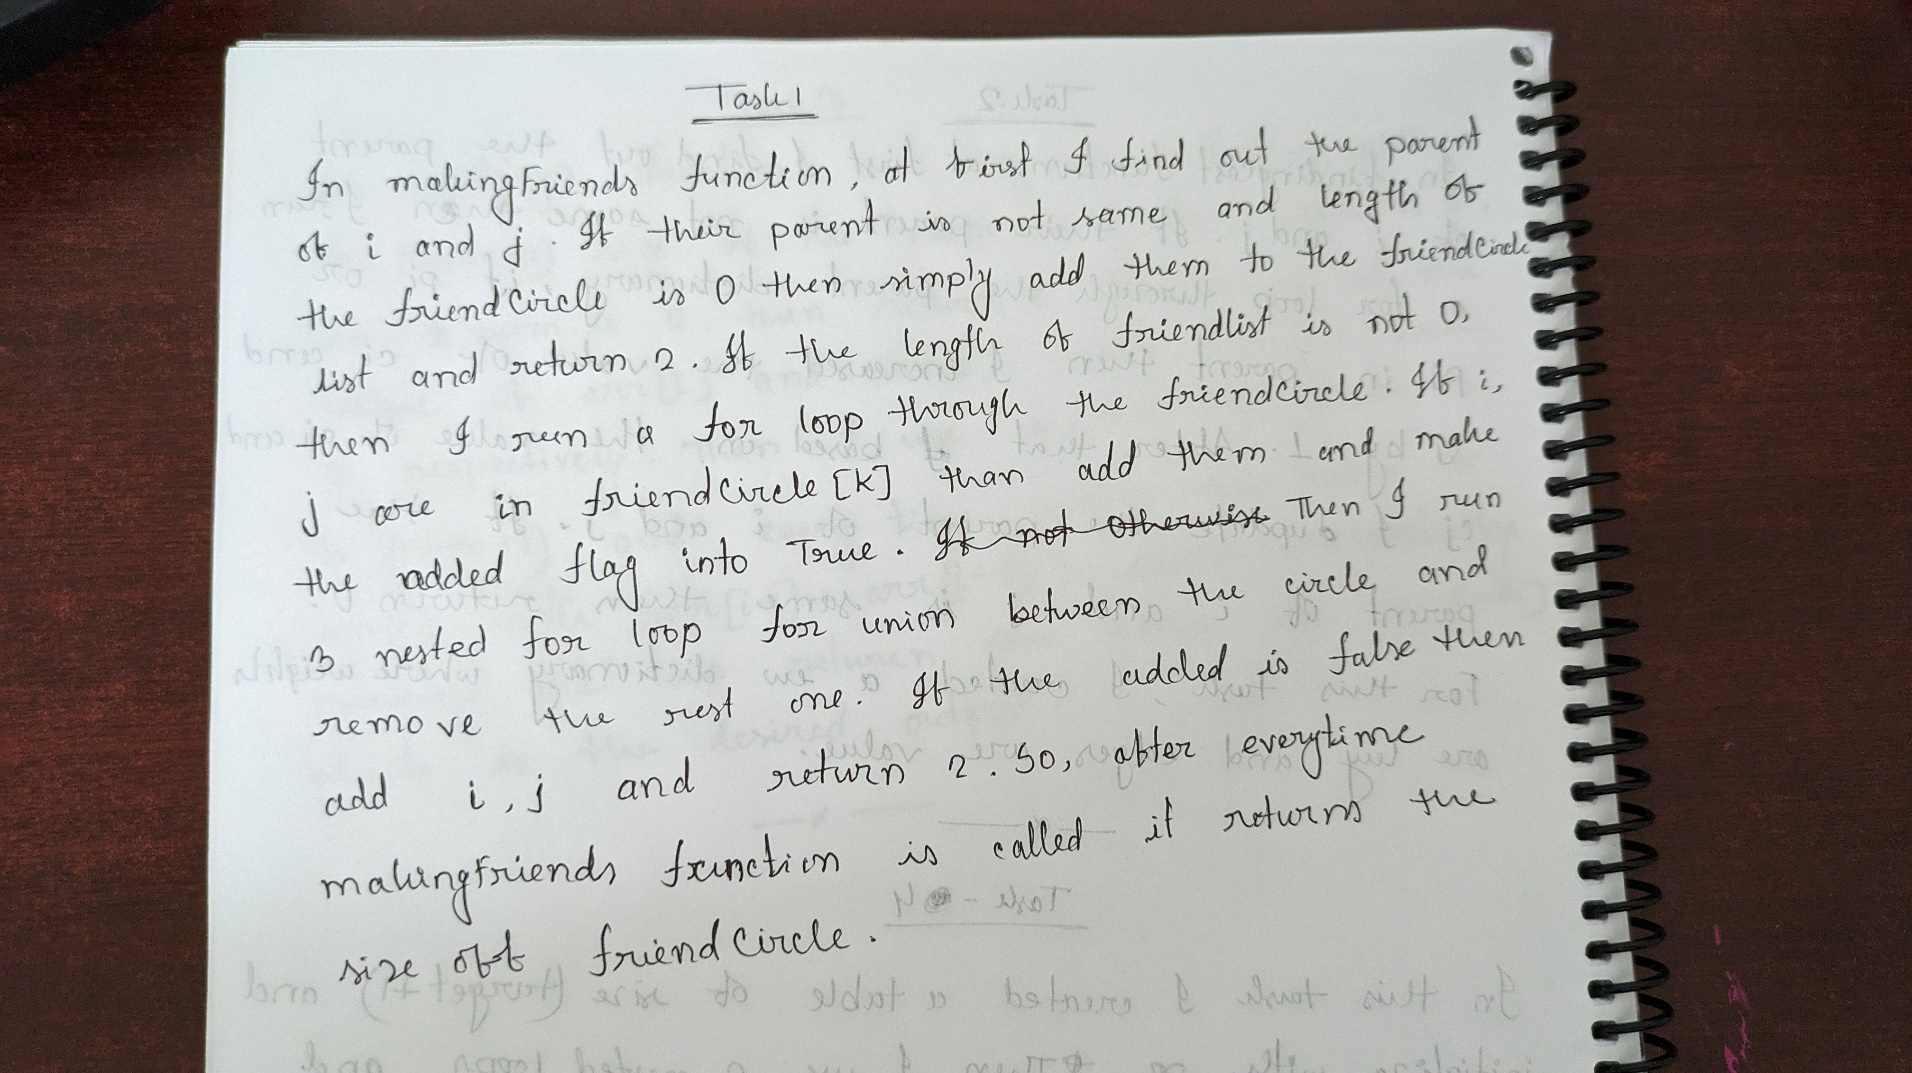 Task 1
In makingFriends function, at first I find out the parent
of i and j. If their parent is not same and length of
the friendCircle is 0 then simply add them to the friendCircle
list and return 2. If the length of friendlist is not 0,
then I run a for loop through the friendCircle. If i,
j are in friendCircle [K] than add them and make
the added flag into True. If not otherwise Then I run
3 nested for loop for union between the circle and
remove the rest one. If the added is false then
add i, j and return 2. So, after everytime
makingfriends function is called it returns the
size of friend Circle.